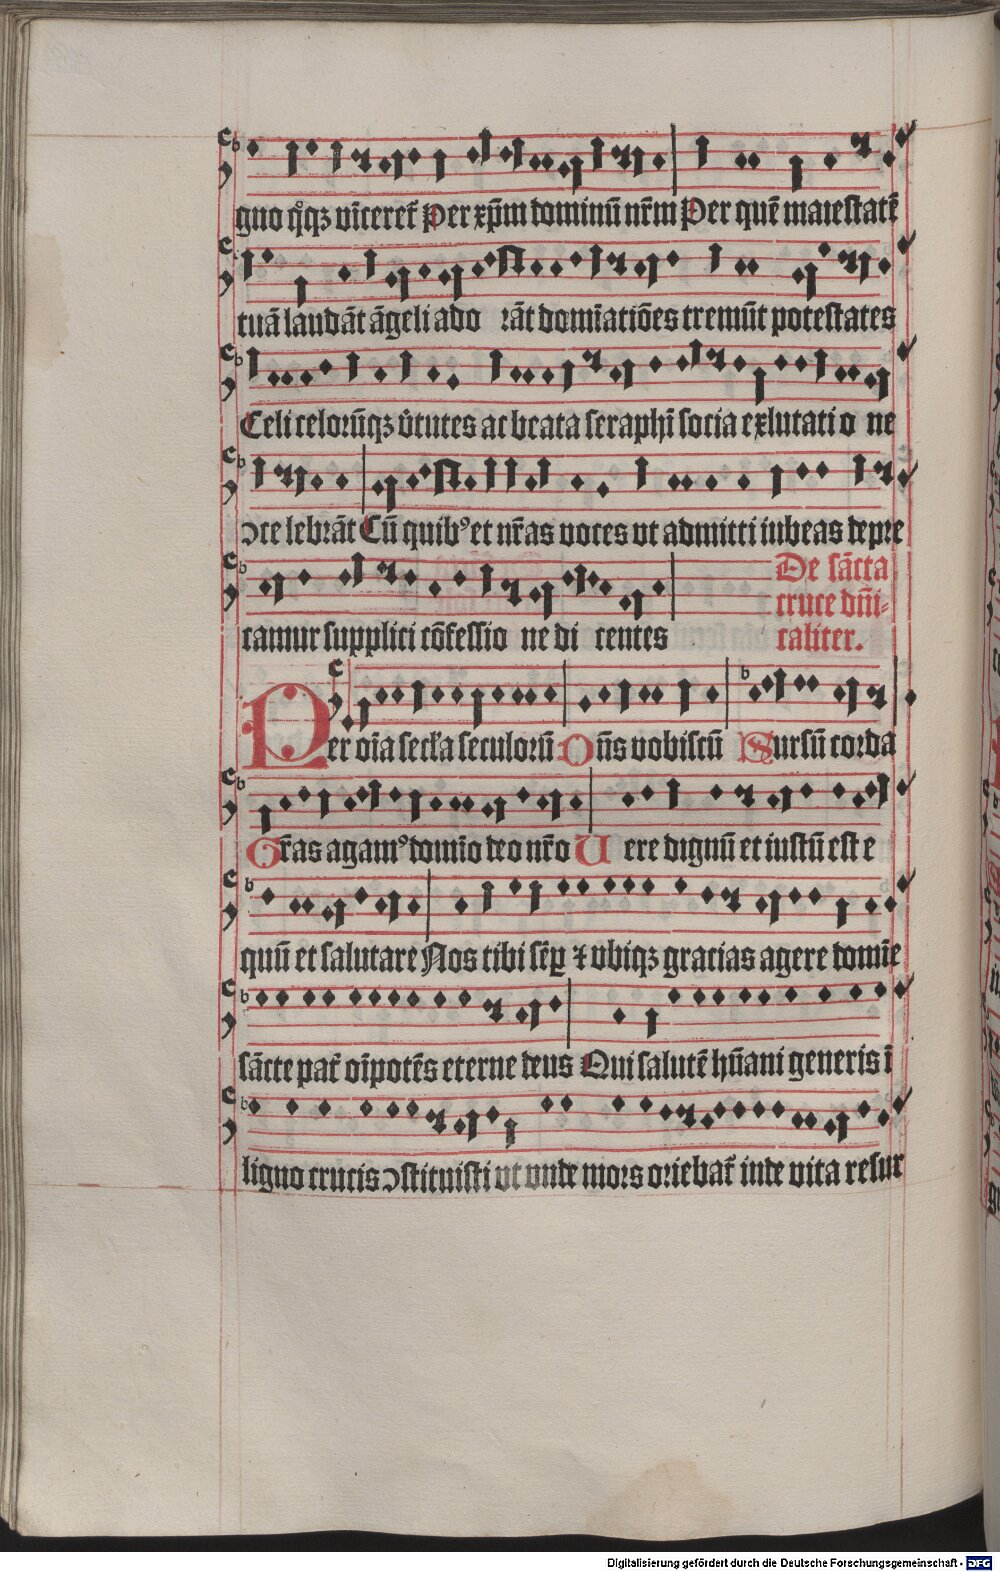 gno qͦqꝫ vĩceret᷒ Per xp̃m dominũ nr̃m Per quẽ maiestatẽ
tuã laudãt ãgeli ado rãt domĩatiões tremũt potestates
Celi celorũqꝫ v̾tutes ac beata seraphĩ socia exlutati o ne
ↄce lebrãt Cũ quibꝰ et nr̃as voces vt admitti iubeas depre
camur supplici cõfessio ne di centes
De sãcta
cruce dñi-
caliter.
Per oĩa sec̃la seculorũ Dñs vobiscũ Sursũ corda
Gr̃as agamꝰ domĩo deo nr̃o Uere dignũ et iustũ est e
quũ et salutare Nos tibi sẽꝑ ⁊ vbiqꝫ gracias agere domĩe
sãcte pat᷒ oĩpotẽs eterne deus Qui salutẽ hũani generis ĩ
ligno crucis ↄstituisti vt vnde mors oriebat᷒ inde vita resur
Digitalisierung gefördert durch die Deutsche Forschungsgemeinschaft - DFG